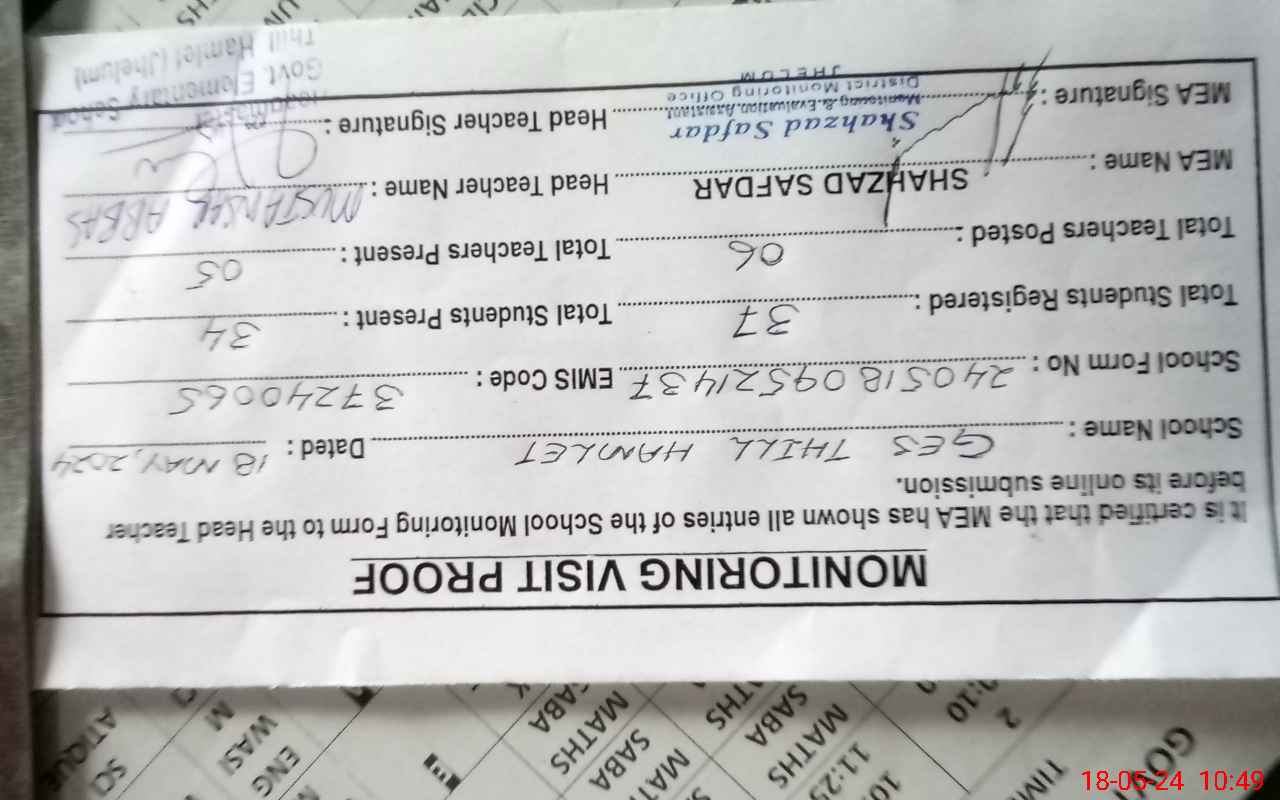 MONITORING VISIT PROOF
It is certified that the MEA has shown all entries of the School Monitoring Form to the Head Teacher
before its online submission.
School Name : GES THILL HAMLET Dated : 18 MAY, 2024
School Form No : 24051809521437 EMIS Code : 37240065
Total Students Registered : 37 Total Students Present : 34
Total Teachers Posted : 06 Total Teachers Present : 05
MEA Name : SHAHZAD SAFDAR Head Teacher Name : MUSTANSAR ABBAS
MEA Signature : Head Teacher Signature :
Shahzad Safdar
Monitoring & Evaluation Assistant
District Monitoring Office
JHELUM
Headmaster
Govt. Elementary School
Thill Hamlet (Jhelum)
GOV
TIM
2
MATHS
SABA
11:25
MATHS
SABA
MATHS
SABA
ENG
WASI
M
ATIQUE
18-05-24 10:49